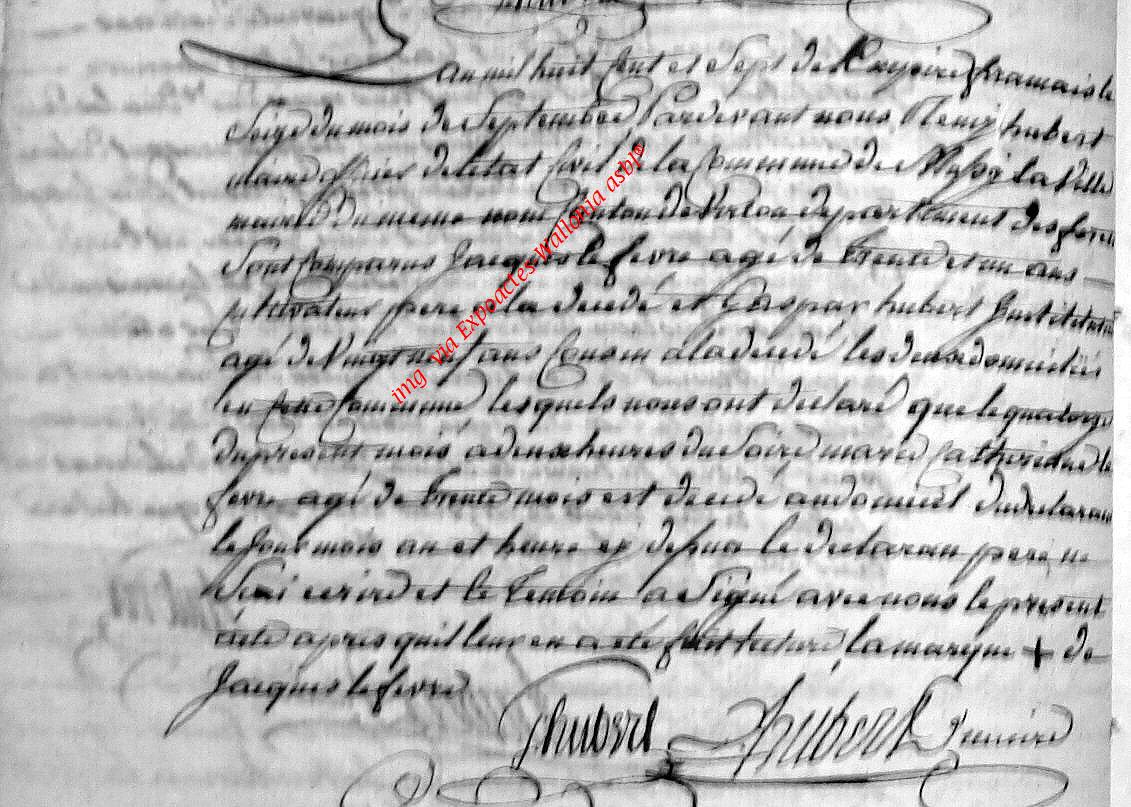 L an mil huit Cent et Sept de l'Empire francais le
Seize du mois de Septembre Pardevant nous Remij hubert
maire officier de letat Civil de la Commune de Mussÿ la ville
mairie du meme nom Canton de Virton departement des foret
Sont Comparus Jacques lefevre agé de trente et un ans
Cultivateur pere a la decedé et Gaspar hubert Institutur
agé de Vingt neuf ans Cousin a la decedé les deux domiciliés
en cette Commune lesquels nous ont declaré que le quatorze
du present mois a deux heures du Soire marie Catherinne le
fevre agé de trente mois est decedé au domicil du declarant
le Jour mois an et heure cy depua le declaran pere ne
Scai ecrire et le temoin a Signé avec nous le present
acte apres quil leur en a eté fait lecture la marque + de
Jacques lefevre
Ghubert Rhubert maire
img via Expoactes-Wallonia asbl®